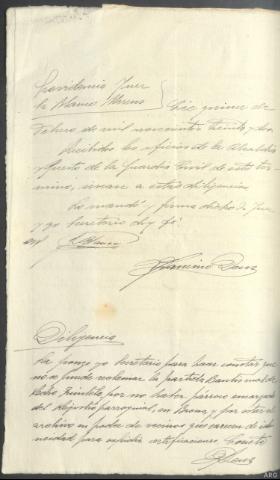 Providencia Juez
Sr Blanco Moreno } Dic primero de
Febrero de mil novecientos treinta y dos
Recibidos los oficios de la Alcaldia
y Puesto de la Guardia Civil de este ter-
mino, unanse a estas diligencias
Lo mandó y firma dicho Sr Juez
y yo Secretario doy fé.
Blanco
Francisco
Diligencia
La pongo yo Secretario para hacer constar que
no se puede reclamar la partida Bautismal de
Pedro por no haber párroco encargado
del Registro parroquial, en y por estar el
archivo en poder de vecinos que carecen de ido-
neidad para expedir certificaciones. Conste
ARG